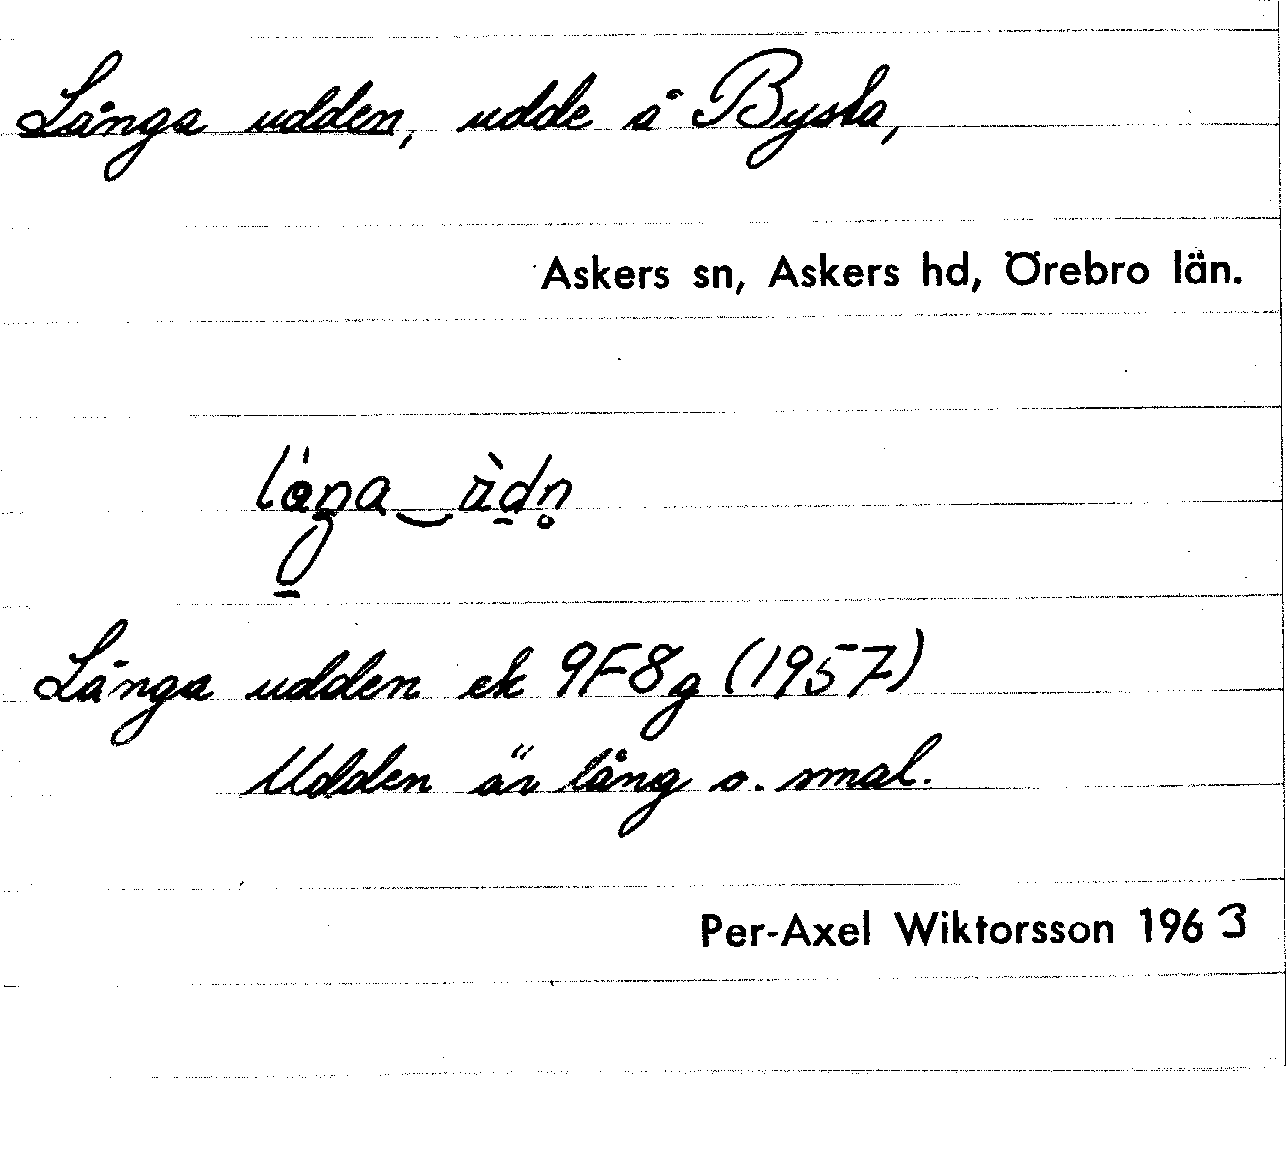 Långa udden, udde å Bysta,
Askers sn, Askers hd, Örebro län.
Långa udden ek 9F8g (1957)
Udden är lång o. smal.
Per-Axel Wiktorsson 1963